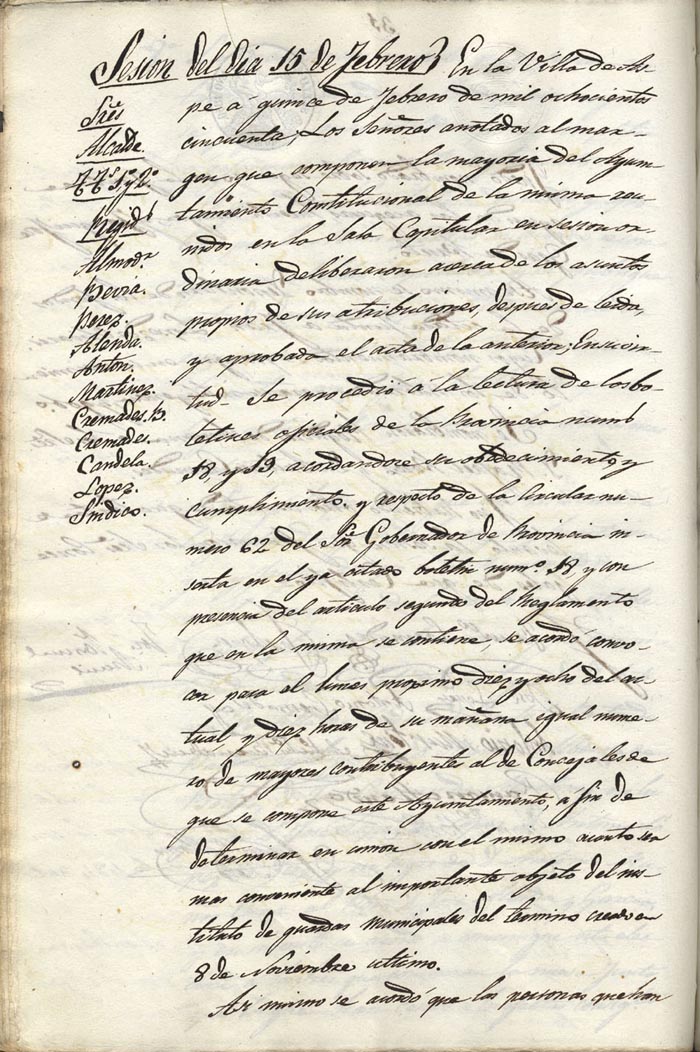 Sesion del dia 15 de Febrero} En la Villa de As-
pe á quince de Febrero de mil ochocientos
cincuenta; Los Señores anotados al mar-
gen que componen la mayoria del Ayun-
tamiento Constitucional de la misma reu-
nidos en la Sala Capitular en sesion or-
dinaria deliberaron acerca de los asuntos
propios de sus atribuciones, despues de leida,
y aprobada el acta de la anterior; En su vir-
tud- Se procedió á la lectura de los bo-
letines oficiales de la Provincia nums
18, y 19, acordandose su obedecimiento, y
cumplimiento. y respecto de la Circular nu-
mero 62 del Sor. Gobernador de Provincia in-
serta en el ya citado boletin numo. 18 y con
presencia del articulo segundo del Reglamento
que en la misma se contiene, se acordó convo-
car para el lunes proximo diez y ocho del ac-
tual, y diez horas de su mañana igual nume-
ro de mayores contribuyente al de Concejales de
que se compone este Ayuntamiento, a fin de
determinar en union con el mismo cuanto sea
mas conveniente al importante objeto del ins-
tituto de guardas municipales del termino creado en
8 de Noviembre ultimo.
Asi mismo se acordó que las personas que han
Sres
Alcalde.
TTs. 1º y 2º
Regids
Almodr.
Pavia.
Perez.
Alenda.
Anton.
Martinez.
Cremades. B.
Cremades.
Candela.
Lopez.
Sindico.